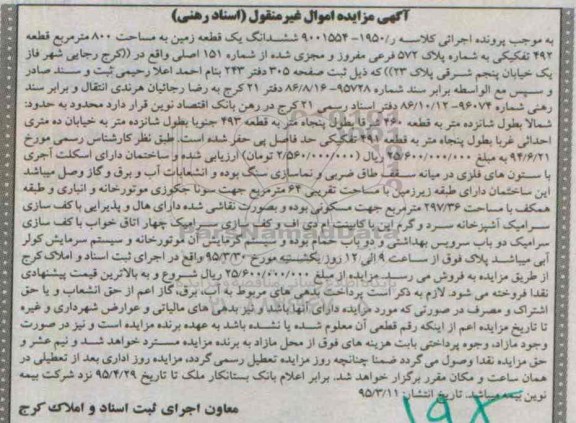 آگهی مزایده اموال غیرمنقول (اسناد رهنی)
به موجب پرونده اجرائی کلاسه ر/۱۹۵۰- ۹۰۰۱۵۵۴ ششدانگ یک قطعه زمین به مساحت ۸۰۰ مترمربع قطعه
۴۹۲ تفکیکی به شماره پلاک ۵۷۲ فرعی مفروز و مجزی شده از شماره ۱۵۱ اصلی واقع در ((کرج رجایی شهر فاز
یک خیابان پنجم شرقی پلاک ۲۳)) که ذیل ثبت صفحه ۳۰۵ دفتر ۲۴۳ بنام احمد اعلا رحیمی ثبت و سند صادر
و سپس مع الواسطه برابر سند شماره ۹۵۷۲۸- ۸۶/۸/۱۶ دفتر ۲۱ کرج به رضا رجائیان هرندی انتقال و برابر سند
رهنی شماره ۹۶۰۷۴- ۸۶/۱۰/۱۲ دفتر اسناد رسمی ۲۱ کرج در رهن بانک اقتصاد نوین قرار دارد محدود به حدود:
شمالا بطول شانزده متر به قطعه ۴۶۰ شرقا بطول پنجاه متر به قطعه ۴۹۳ جنوبا بطول شانزده متر به خیابان ده متری
احداثی غربا بطول پنجاه متر به قطعه ۴۹۱ تفکیکی حد فاصل پی حفر شده است. طبق نظر کارشناس رسمی مورخ
۹۴/۶/۲۱ به مبلغ ۲۵/۶۰۰/۰۰۰/۰۰۰ ریال (۲/۵۶۰/۰۰۰/۰۰۰ تومان) ارزیابی شده و ساختمان دارای اسکلت آجری
با ستون های فلزی در میانه سقف طاق ضربی و نماسازی سنگ بوده و انشعابات آب و برق و گاز وصل میباشد
این ساختمان دارای طبقه زیرزمین با مساحت تقریبی ۶۴ مترمربع جهت سونا جکوزی موتورخانه و انباری و طبقه
همکف با مساحت ۲۹۷/۳۶ مترمربع جهت مسکونی بوده و بصورت نقاشی شده دارای هال و پذیرایی با کف سازی
سرامیک آشپزخانه سرد و گرم این با کابینت ام دی اف و کف سازی سرامیک چهار اتاق خواب با کف سازی
سرامیک دو باب سرویس بهداشتی و دو باب حمام بوده و سیستم گرمایش آن موتورخانه و سیستم سرمایش کولر
آبی میباشد پلاک فوق از ساعت ۹ الی ۱۲ روز یکشنبه مورخ ۹۵/۳/۳۰ واقع در اجرای ثبت اسناد و املاک کرج
از طریق مزایده به فروش می رسد. مزایده از مبلغ ۲۵/۶۰۰/۰۰۰/۰۰۰ ریال شروع و به بالاترین قیمت پیشنهادی
نقدا فروخته می شود. لازم به ذکر است پرداخت بدهی های مربوط به آب، برق، گاز اعم از حق انشعاب و یا حق
اشتراک و مصرف در صورتی که مورد مزایده دارای آنها باشد و نیز بدهی های مالیاتی و عوارض شهرداری و غیره
تا تاریخ مزایده اعم از اینکه رقم قطعی آن معلوم شده یا نشده باشد به عهده برنده مزایده است و نیز در صورت
وجود مازاد، وجوه پرداختی بابت هزینه های فوق از محل مازاد به برنده مزایده مسترد خواهد شد و نیم عشر و
حق مزایده نقدا وصول می گردد ضمنا چنانچه روز مزایده تعطیل رسمی گردد، مزایده روز اداری بعد از تعطیلی در
همان ساعت و مکان مقرر برگزار خواهد شد. برابر اعلام بانک بستانکار ملک تا تاریخ ۹۵/۴/۲۹ نزد شرکت بیمه
نوین بیمه میباشد. تاریخ انتشار: ۹۵/۳/۱۱
معاون اجرای ثبت اسناد و املاک کرج